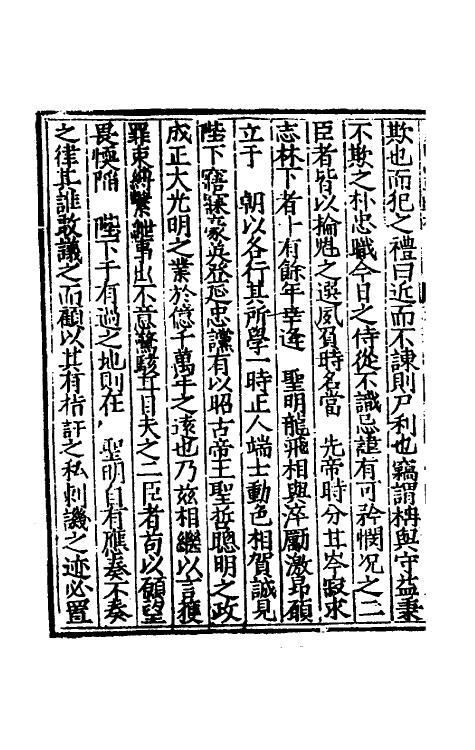 欺也而犯之禮曰近而不諫則尸利也竊謂栴與守益秉
不欺之朴忠職今日之侍從不識忌諱有可矜憫况之二
臣者皆以掄魁之選夙負時名當 先帝時分甘岑寂求
志林下者十有餘年幸逢 聖明龍飛相與淬勵激昂願
立于 朝以各行其所學一時正人端士動色相賀誠見
陛下寤寐豪英登延忠讜有以昭古帝王聖哲聰明之政
成正大光明之業於億千萬年之遠也乃玆相繼以言獲
罪束縛繫紲事出不意驚駭耳目夫之二臣者苟以顧望
畏懊陷 陛下于有過之地則在 聖明自有應奏不奏
之律其誰敢議之而顧以其有指訐之私刺譏之迹必置